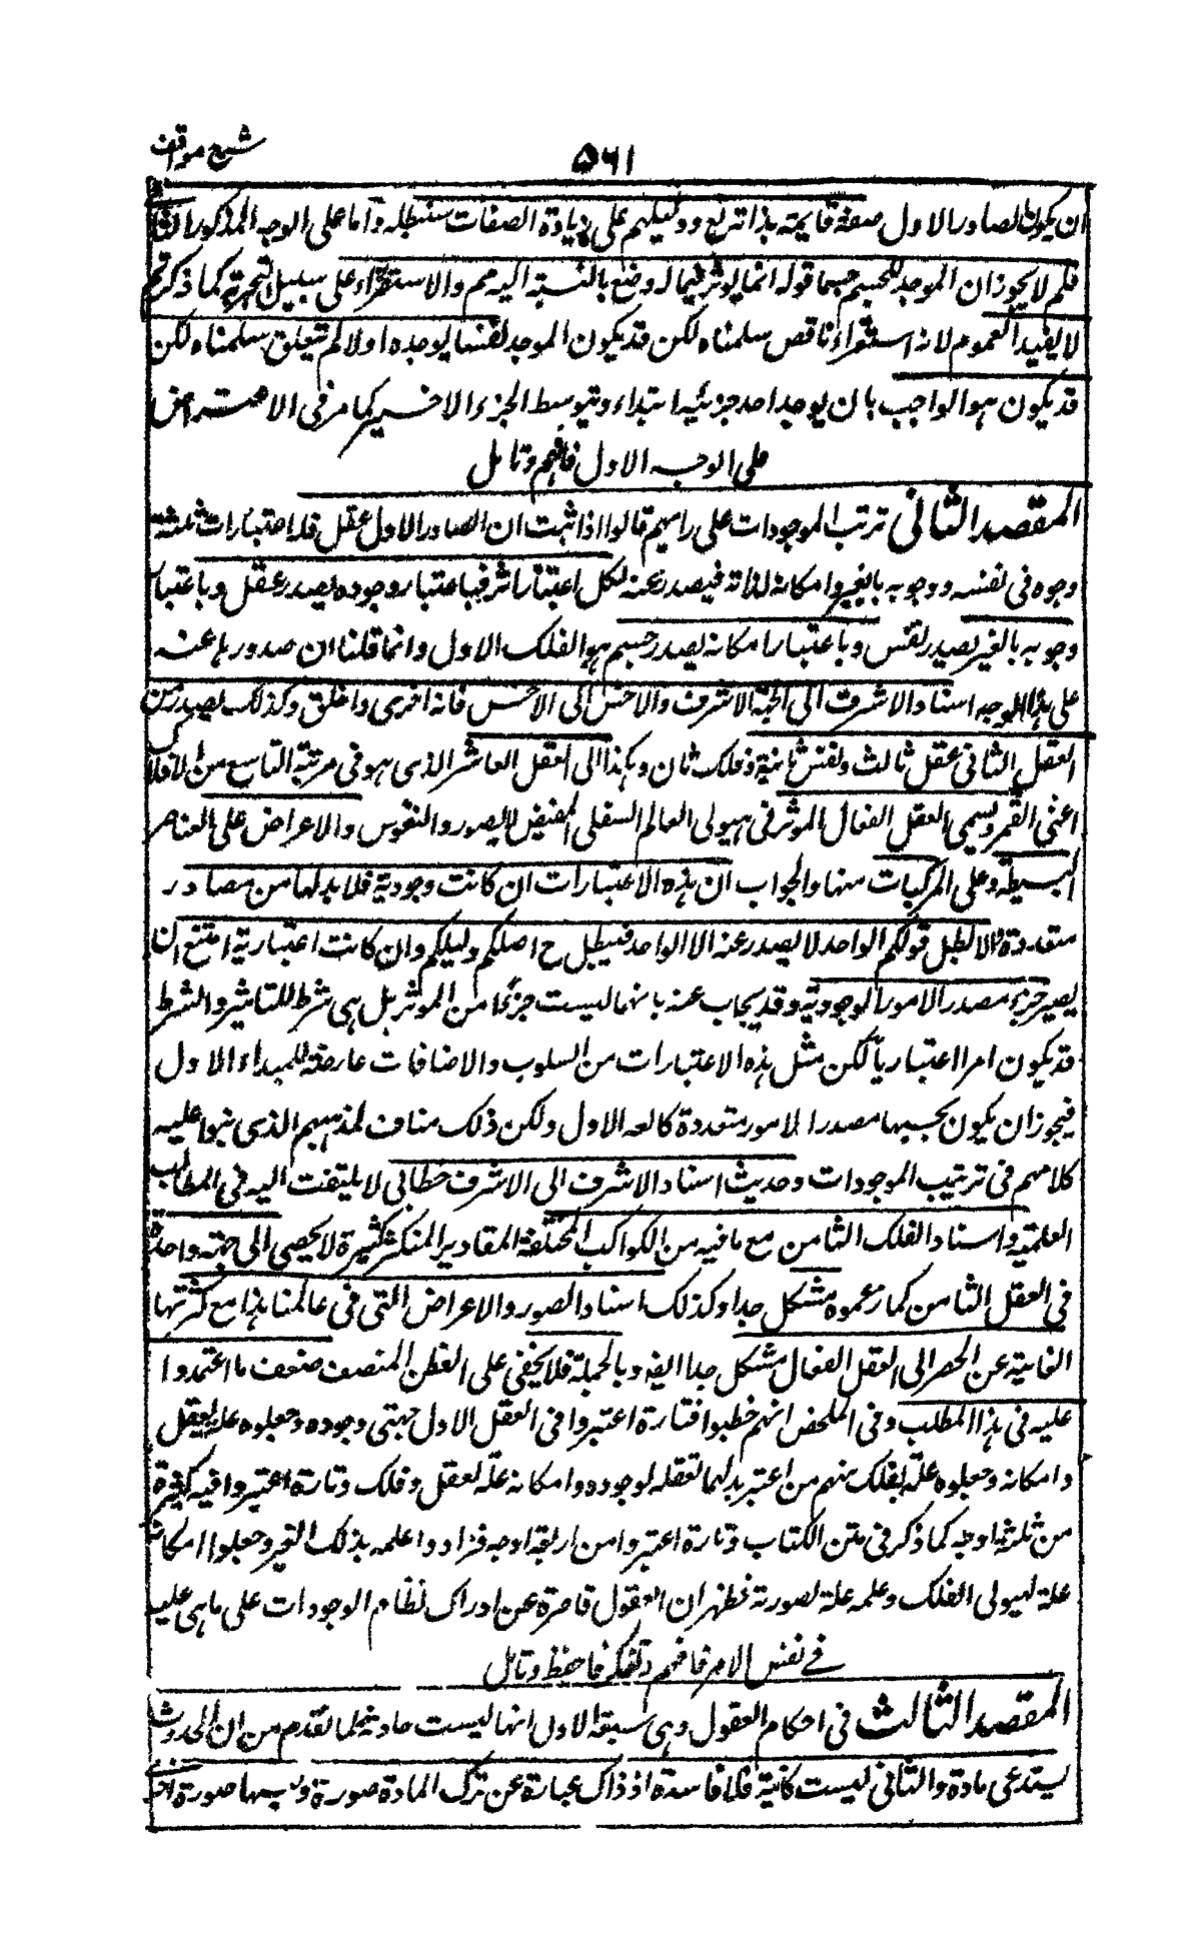 شرح مواقف
۵۶۱
ان يكون الصادر الاول صفة قايمة بذاته ودليلهم على زيادة الصفات سنبطله واما على الوجه المذكور الثا
فلم لا يجوز ان الموجد للجسم جسما قوله انما يوثر فيما له وضع بالنسبة اليه مم والاستقراء على سبيل التجربة كما ذكرتم
لا يفيد العموم لانه استقراء ناقص سلمناه لكن قد يكون الموجد نفسا يوجده اولا ثم تتعلق سلمناه لكن
قد يكون هو الواجب بان يوجد احد جزئيه ابتداء وبتوسط الجزء الاخر كما مر فى الاعتراض
على الوجه الاول فافهم وتامل
المقصد الثانى ترتب الموجودات على رايهم قالوا اذا ثبت ان الصادر الاول عقل فله اعتبارات ثلثة
وجوده فى نفسه ووجوبه بالغير وامكانه لذاته فيصدر عنه لكل اعتبار اثر فباعتبار وجوده يصدر عقل وباعتبار
وجوبه بالغير يصدر نفس وباعتبار امكانه يصدر جسم هو الفلك الاول وانما قلنا ان صدورها عنه
على هذا الوجه اسنادا للاشرف الى الجهة الاشرف والاخس الى الاخس فانه احرى واخلق وكذلك يصدر من
العقل الثانى عقل ثالث ونفس ثانية وفلك ثان وهكذا الى العقل العاشر الذى هو فى مرتبة التاسع من الافلاك
اعنى القمر ويسمى العقل الفعال الموثر فى هيولى العالم السفلى المفيض للصور والنفوس والاعراض على العناصر
البسيطة وعلى المركبات منها والجواب ان هذه الاعتبارات ان كانت وجودية فلا بد لها من مصادر
متعددة والا لبطل قولكم الواحد لا يصدر عنه الا الواحد فيبطل ح اصلكم ودليلكم وان كانت اعتبارية امتنع ان
يصير جزء مصدر الامور الوجودية وقد يجاب عنه بانها ليست جزءا من الموثر بل هى شرط للتاثير والشرط
قد يكون امرا اعتباريا لكن مثل هذه الاعتبارات من السلوب والاضافات عارضة للمبداء الاول
فيجوز ان يكون بحسبها مصدرا لامور متعددة كالعه الاول ولكن ذلك مناف لمذهبهم الذى بنوا عليه
كلامهم فى ترتيب الموجودات وحديث اسناد الاشرف الى الاشرف خطابى لا يلتفت اليه فى المطالب
العلمية واسناد الفلك الثامن مع ما فيه من الكواكب المختلفة المقادير المتكثرة كثيرة لا يحصى الى جهة واحدة
فى العقل الثامن كما زعموه مشكل جدا وكذلك اسناد الصور والاعراض التى فى عالمنا هذا مع كثرتها
الفايتة عن الحصر الى العقل الفعال مشكل جدا ايضا وبالجملة فلا يخفى على الفطن المنصف ضعف ما اعتمدوا
عليه فى هذا المطلب وفى الملخص انهم خبطوا فتارة اعتبروا فى العقل الاول جهتى وجوده وجعلوه علة لعقل
وامكانه وجعلوه علة لفلك ومنهم من اعتبر بدلهما تعقله لوجوده وامكانه علة لعقل وفلك وتارة اعتبروا فيه كثرة
من ثلثة اوجه كما ذكر فى متن الكتاب وتارة اعتبروا من اربعة اوجه فزادوا علمه بذلك الغير وجعلوا امكانه
علة لهيولى الفلك وعلمه علة لصورته فظهر ان العقول قاصرة عن ادراك نظام الوجودات على ما هى عليه
فى نفس الامر فافهم وتفكر فاحفظ وتامل
المقصد الثالث فى احكام العقول وهى سبعة الاول انها ليست حادثة لما تقدم من ان الحدوث
يستدعى مادة والثانى ليست كائنة ولا فاسدة اذ ذاك عبارة عن ترك المادة صورة ولبسها صورة